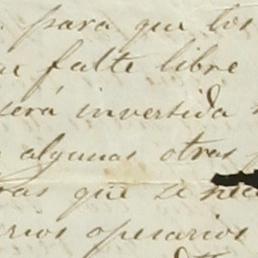 para que los
falte libre
será invertida
algunas otras
que se nece
operarios